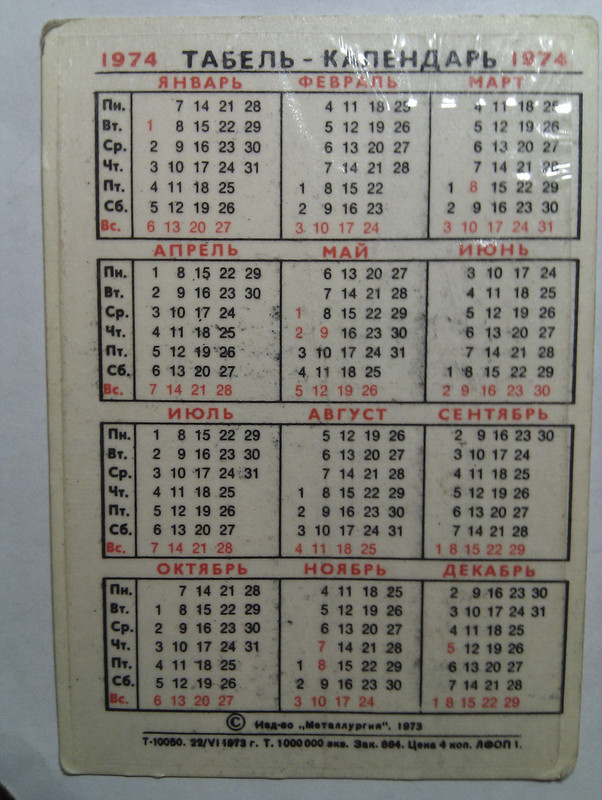 1974 ТАБЕЛЬ-КАЛЕНДАРЬ 1974
ЯНВАРЬ ФЕВРАЛЬ МАРТ
Пн. 7 14 21 28 4 11 18 25 4 11 18 25
Вт. 1 8 15 22 29 5 12 19 26 5 12 19 26
Ср. 2 9 16 23 30 6 13 20 27 6 13 20 27
Чт. 3 10 17 24 31 7 14 21 28 7 14 21 28
Пт. 4 11 18 25 1 8 15 22 1 8 15 22 29
Сб. 5 12 19 26 2 9 16 23 2 9 16 23 30
Вс. 6 13 20 27 3 10 17 24 3 10 17 24 31
АПРЕЛЬ МАЙ ИЮНЬ
Пн. 1 8 15 22 29 6 13 20 27 3 10 17 24
Вт. 2 9 16 23 30 7 14 21 28 4 11 18 25
Ср. 3 10 17 24 1 8 15 22 29 5 12 19 26
Чт. 4 11 18 25 2 9 16 23 30 6 13 20 27
Пт. 5 12 19 26 3 10 17 24 31 7 14 21 28
Сб. 6 13 20 27 4 11 18 25 1 8 15 22 29
Вс. 7 14 21 28 5 12 19 26 2 9 16 23 30
ИЮЛЬ АВГУСТ СЕНТЯБРЬ
Пн. 1 8 15 22 29 5 12 19 26 2 9 16 23 30
Вт. 2 9 16 23 30 6 13 20 27 3 10 17 24
Ср. 3 10 17 24 31 7 14 21 28 4 11 18 25
Чт. 4 11 18 25 1 8 15 22 29 5 12 19 26
Пт. 5 12 19 26 2 9 16 23 30 6 13 20 27
Сб. 6 13 20 27 3 10 17 24 31 7 14 21 28
Вс. 7 14 21 28 4 11 18 25 1 8 15 22 29
ОКТЯБРЬ НОЯБРЬ ДЕКАБРЬ
Пн. 7 14 21 28 4 11 18 25 2 9 16 23 30
Вт. 1 8 15 22 29 5 12 19 26 3 10 17 24 31
Ср. 2 9 16 23 30 6 13 20 27 4 11 18 25
Чт. 3 10 17 24 31 7 14 21 28 5 12 19 26
Пт. 4 11 18 25 1 8 15 22 29 6 13 20 27
Сб. 5 12 19 26 2 9 16 23 30 7 14 21 28
Вс. 6 13 20 27 3 10 17 24 1 8 15 22 29
© Изд-во „Металлургия", 1973
Т-10050. 22/VI 1973 г. Т. 1000 000 экз. Зак. 664. Цена 4 коп. ЛФОП 1.